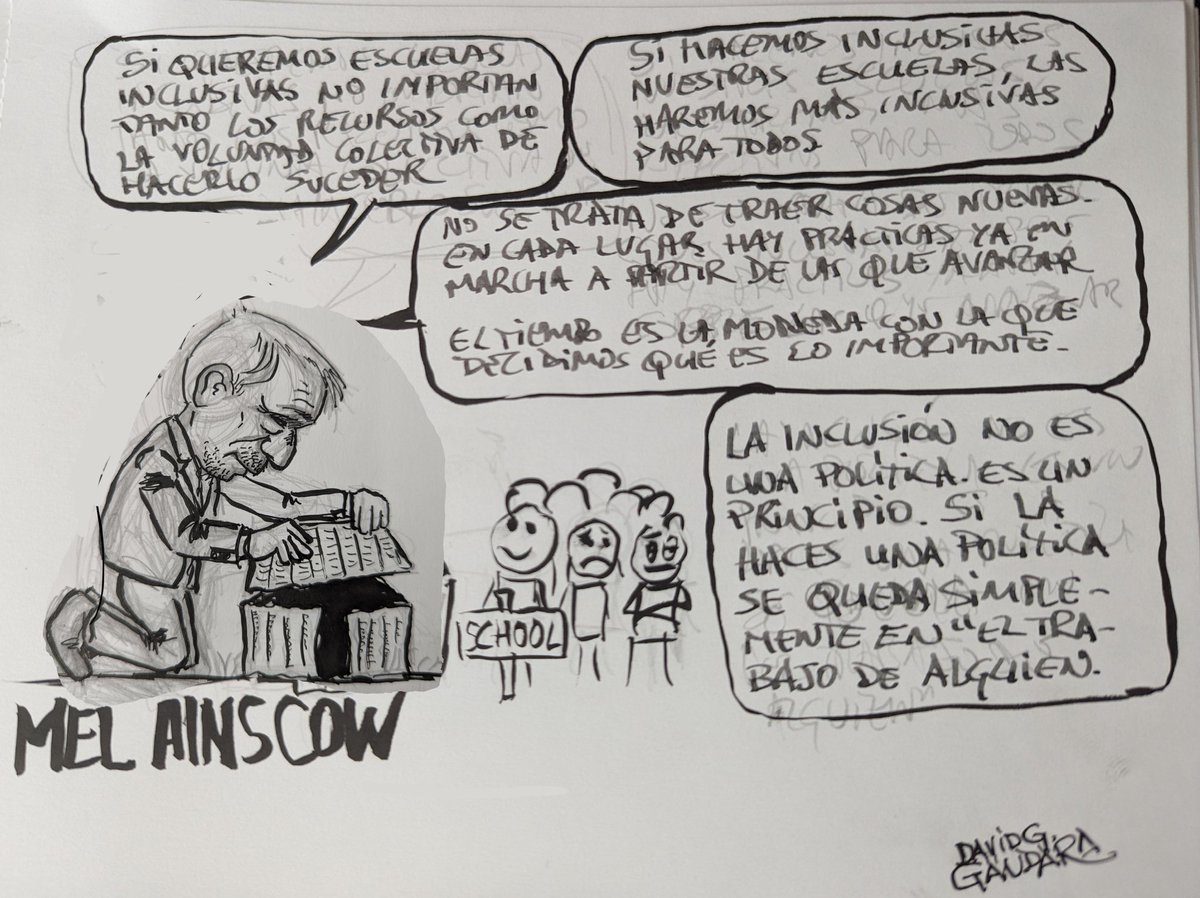 SI QUEREMOS ESCUELAS
INCLUSIVAS NO IMPORTAN
TANTO LOS RECURSOS COMO
LA VOLUNTAD COLECTIVA DE
HACERLO SUCEDER
SI HACEMOS INCLUSIVAS
NUESTRAS ESCUELAS, LAS
HAREMOS MÁS INCLUSIVAS
PARA TODOS
NO SE TRATA DE TRAER COSAS NUEVAS.
EN CADA LUGAR HAY PRÁCTICAS YA EN
MARCHA A PARTIR DE LAS QUE AVANZAR
EL TIEMPO ES LA MONEDA CON LA QUE
DECIDIMOS QUÉ ES LO IMPORTANTE.
LA INCLUSIÓN NO ES
UNA POLÍTICA. ES UN
PRINCIPIO. SI LA
HACES UNA POLÍTICA
SE QUEDA SIMPLE-
MENTE EN "EL TRA-
BAJO DE ALGUIEN.
SCHOOL
MEL AINSCOW
DAVID G.
GANDARA